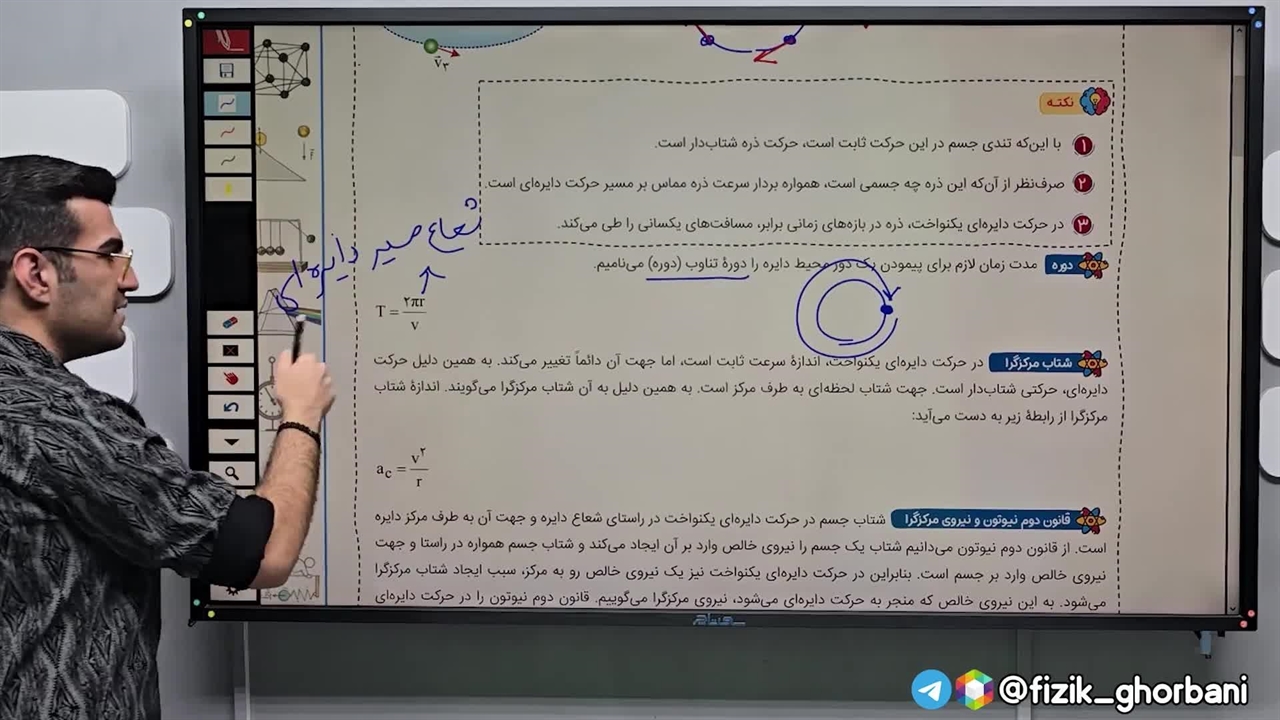 v⃗۳
نکته
۱ با این‌که تندی جسم در این حرکت ثابت است، حرکت ذره شتاب‌دار است.
۲ صرف‌نظر از آن‌که این ذره چه جسمی است، همواره بردار سرعت ذره مماس بر مسیر حرکت دایره‌ای است.
۳ در حرکت دایره‌ای یکنواخت، ذره در بازه‌های زمانی برابر، مسافت‌های یکسانی را طی می‌کند.
شعاع مسیر دایره‌ای
دوره مدت زمان لازم برای پیمودن یک دور محیط دایره را دورهٔ تناوب (دوره) می‌نامیم.
T = ۲πr / v
شتاب مرکزگرا در حرکت دایره‌ای یکنواخت، اندازهٔ سرعت ثابت است، اما جهت آن دائماً تغییر می‌کند. به همین دلیل حرکت
دایره‌ای، حرکتی شتاب‌دار است. جهت شتاب لحظه‌ای به طرف مرکز است. به همین دلیل به آن شتاب مرکزگرا می‌گویند. اندازهٔ شتاب
مرکزگرا از رابطهٔ زیر به دست می‌آید:
a_c = v^۲ / r
قانون دوم نیوتون و نیروی مرکزگرا شتاب جسم در حرکت دایره‌ای یکنواخت در راستای شعاع دایره و جهت آن به طرف مرکز دایره
است. از قانون دوم نیوتون می‌دانیم شتاب یک جسم را نیروی خالص وارد بر آن ایجاد می‌کند و شتاب جسم همواره در راستا و جهت
نیروی خالص وارد بر جسم است. بنابراین در حرکت دایره‌ای یکنواخت نیز یک نیروی خالص رو به مرکز، سبب ایجاد شتاب مرکزگرا
می‌شود. به این نیروی خالص که منجر به حرکت دایره‌ای می‌شود، نیروی مرکزگرا می‌گوییم. قانون دوم نیوتون را در حرکت دایره‌ای
@fizik_ghorbani